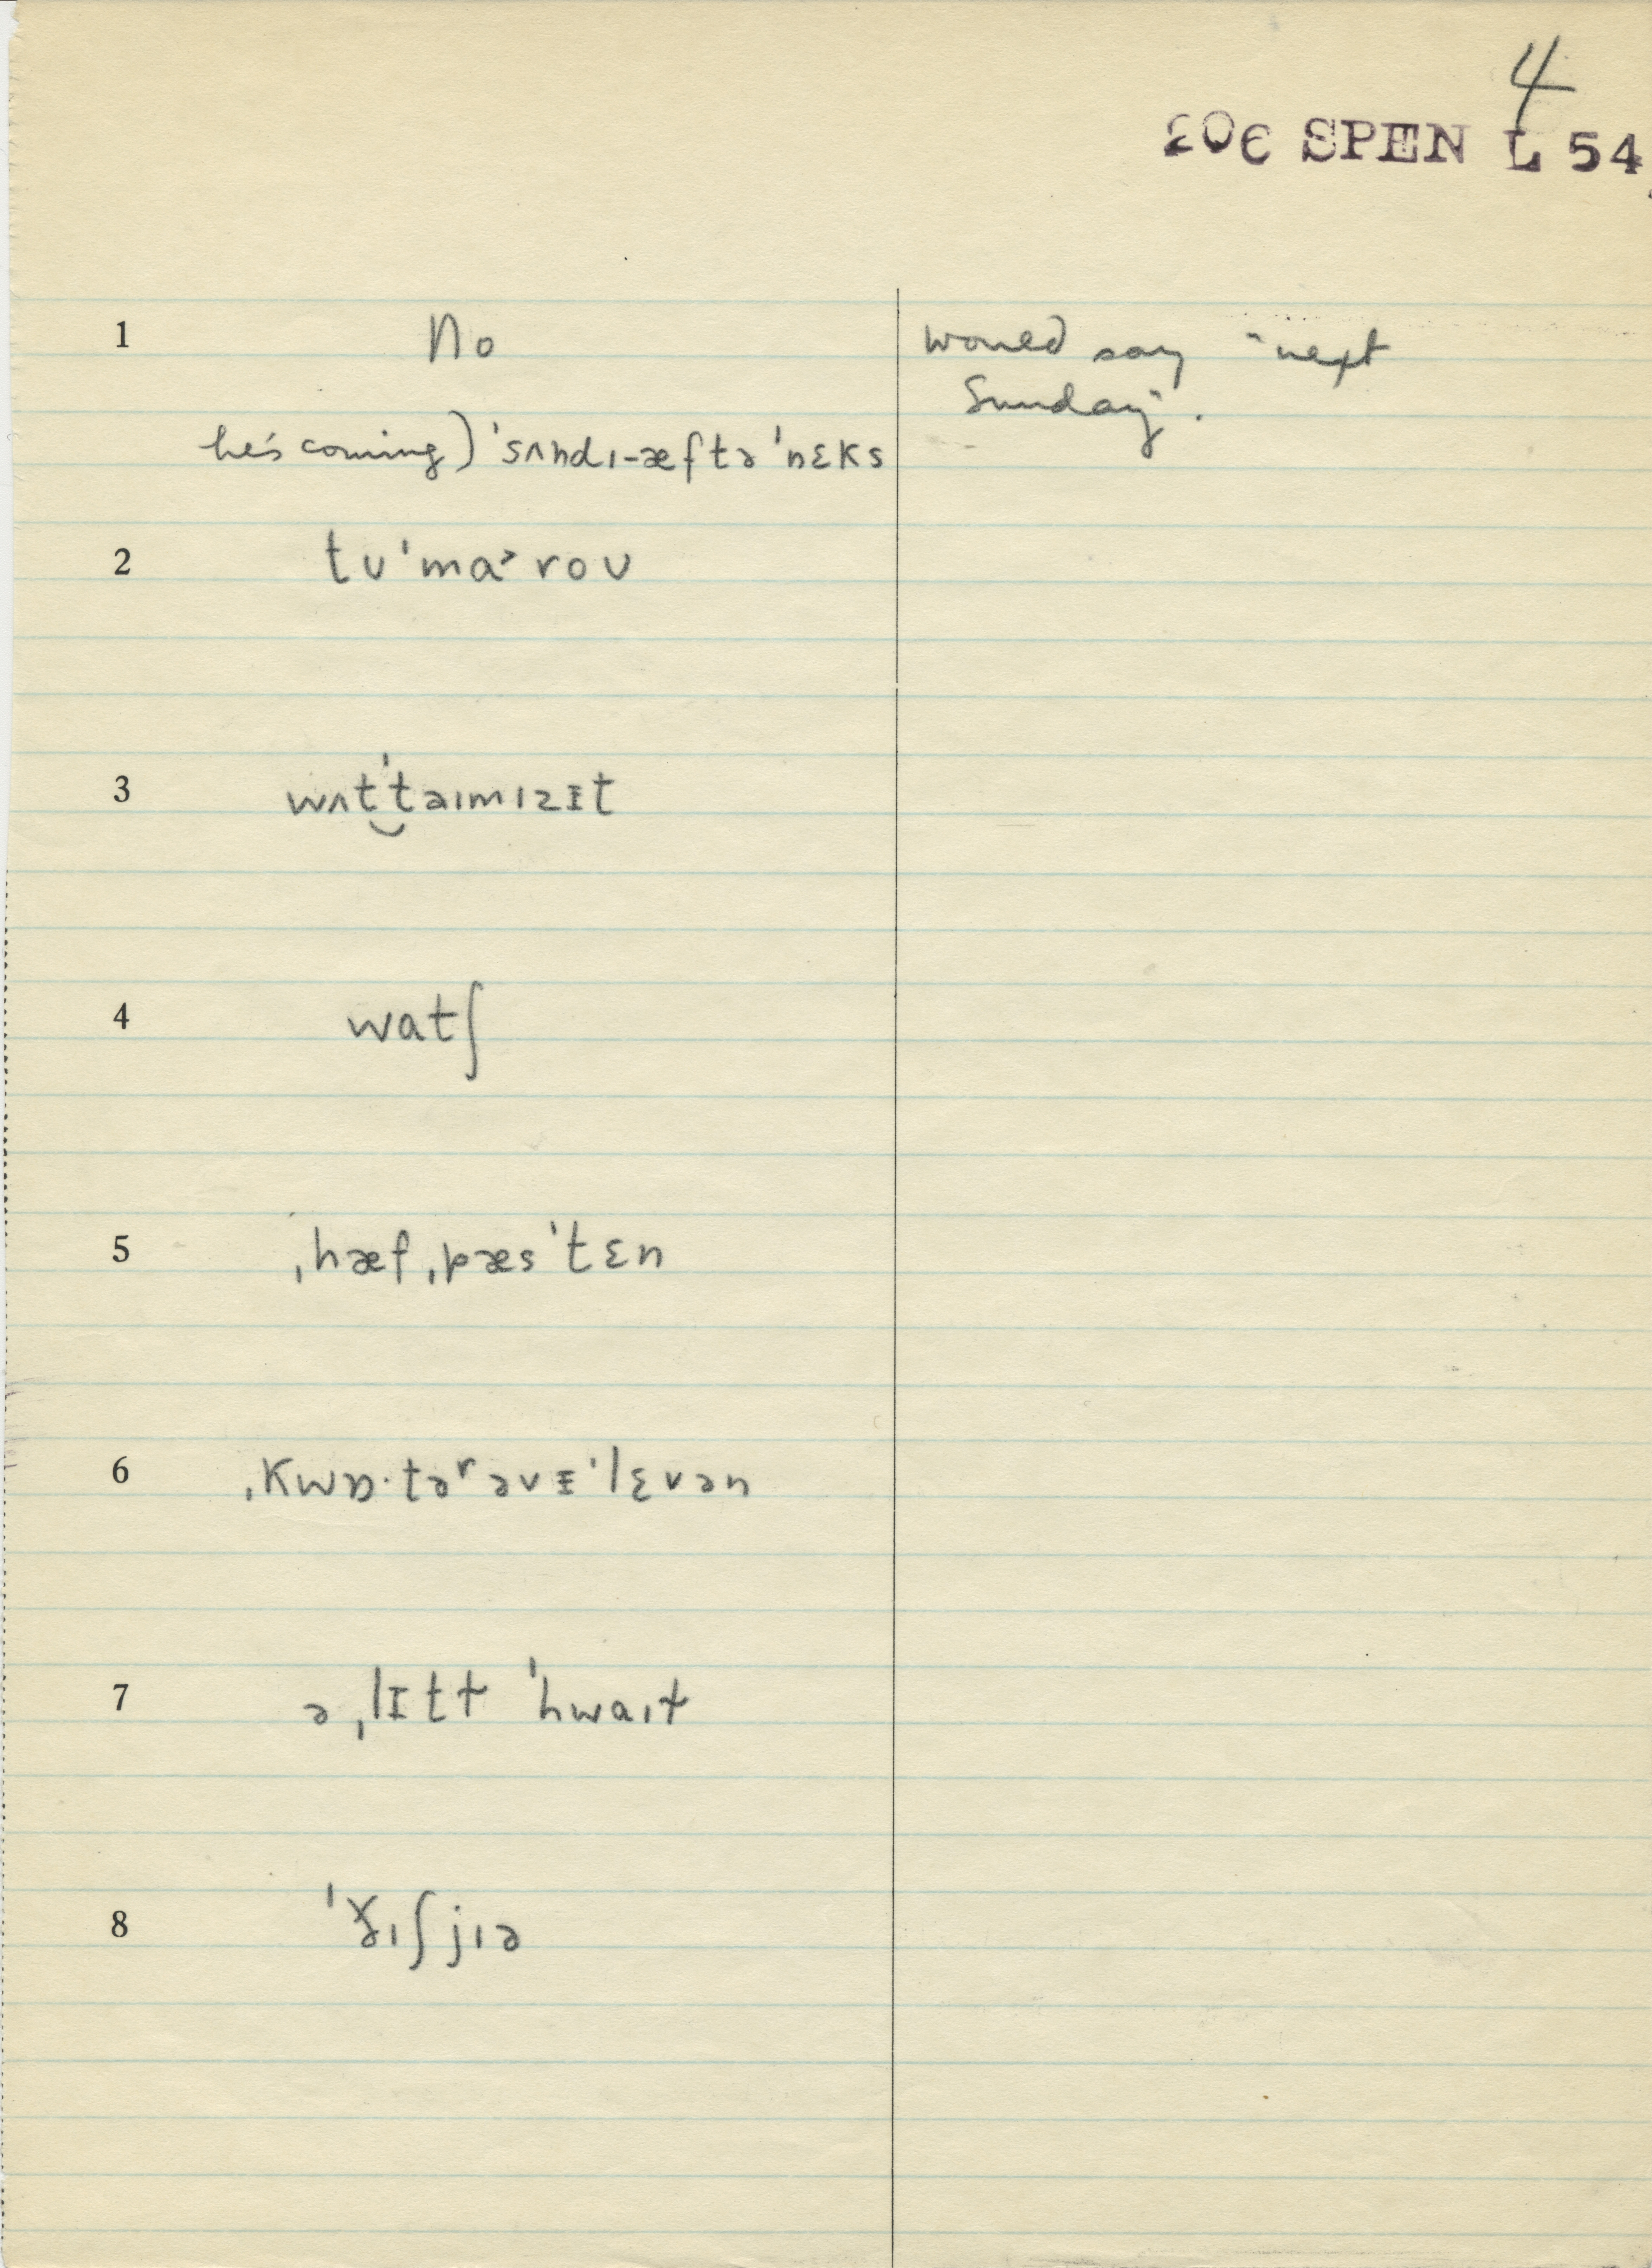 4
306 SPEN L 54
1 No would say "next
Sunday".
he's coming) ˈsʌndɪ-æftəˈnɛks
2 tʊˈmɑ˃roʊ
3 wʌtˈ‿təɪmɪzɪt
4 watʃ
5 ˌhæfˌpæsˈtɛn
6 ˌkwɒ·təʳəvɪˈlɛvən
7 əˌlɪtt ˈhwaɪt
8 ˈɣɪʃjɪə